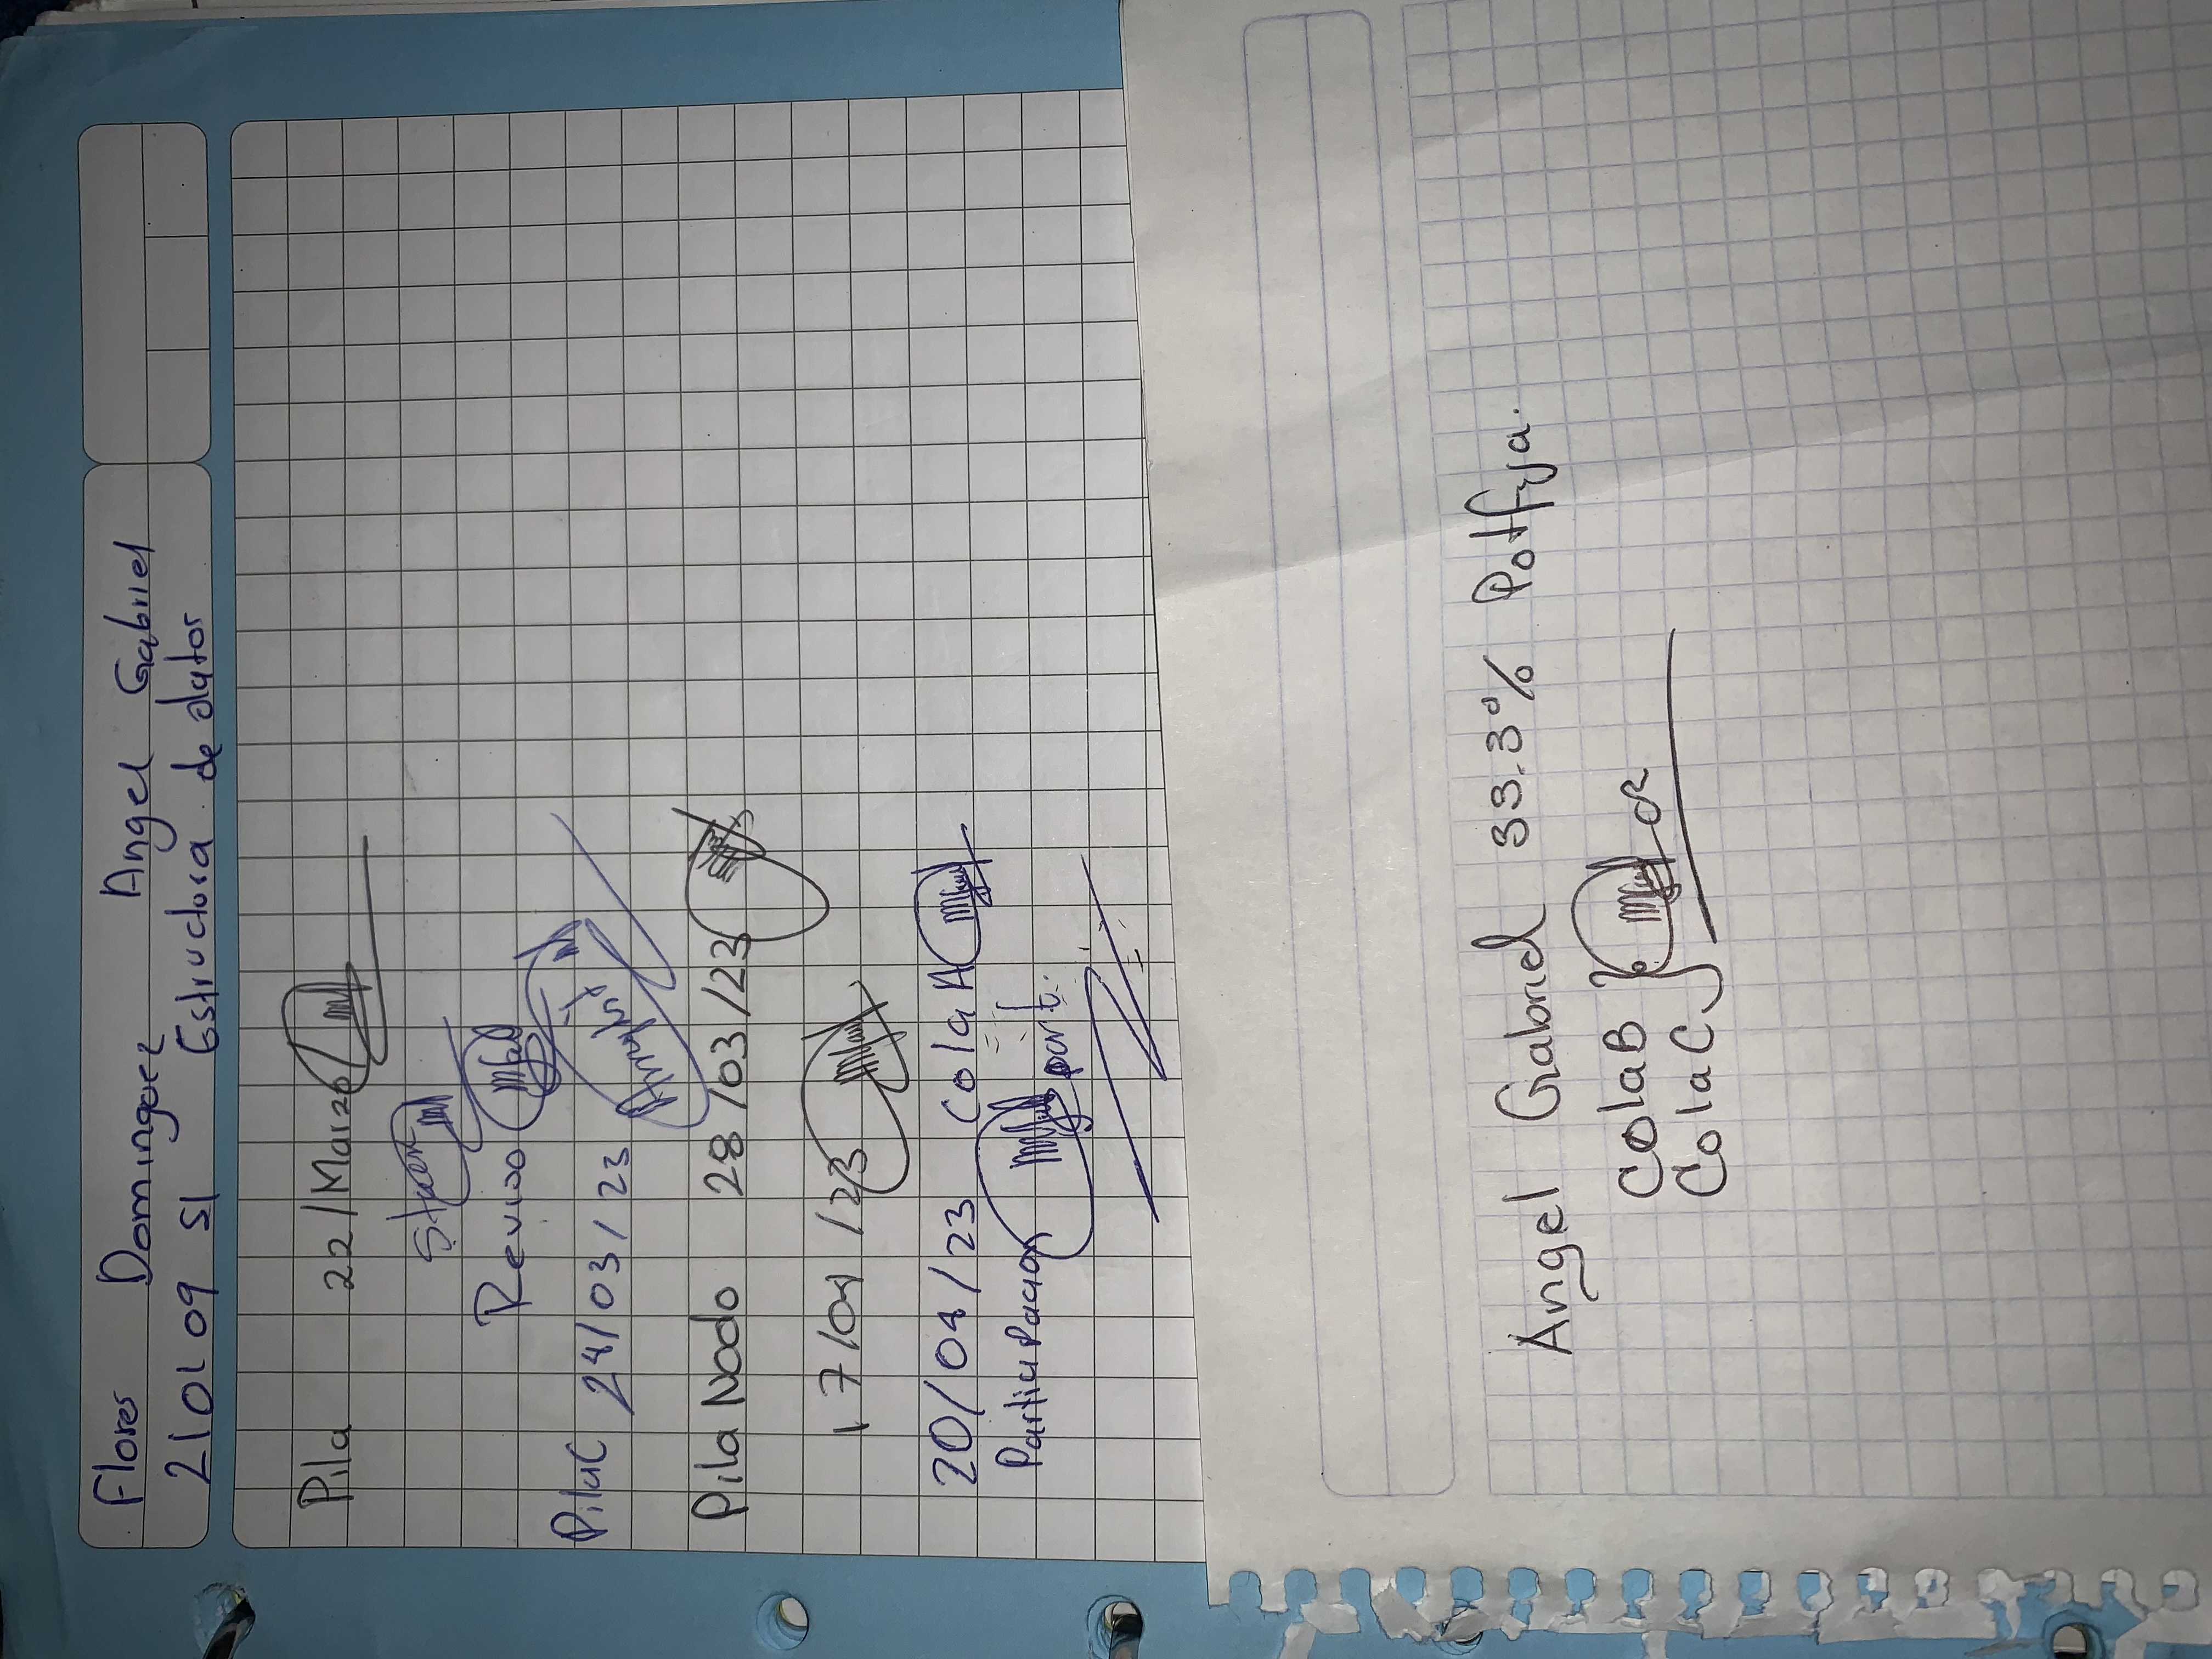 Flores Dominguez Angel Gabriel
21010951 Estructura de datos
Pila 22/Marzo/
Reviso
PilaC 24/03/23
Pila Nodo 28/03/23
17/04/23
20/04/23 ColaA
Participacion part.
Angel Gabriel 33.3%
ColaB
ColaC